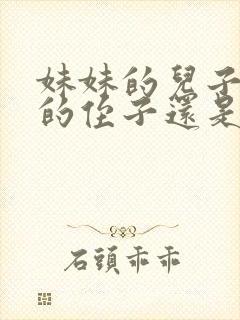 妹妹的兒子
的侄子還是
石頭乖乖